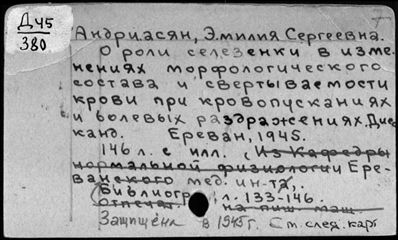 Д45
380
Андриасян, Эмилия Сергеевна.
О роли селезенки в изме-
нениях морфологического
состава и свертываемости
крови при кровопусканиях
и болевых раздражениях. Дис.
канд. Ереван, 1945.
146 л. с илл. (Из Кафедры
нормальной физиологии Ере-
ванского мед. ин-та).
Библиогр. л. 133-146.
Отпечат. на пиш. маш.
Защищена в 1945 г. См. след. карт